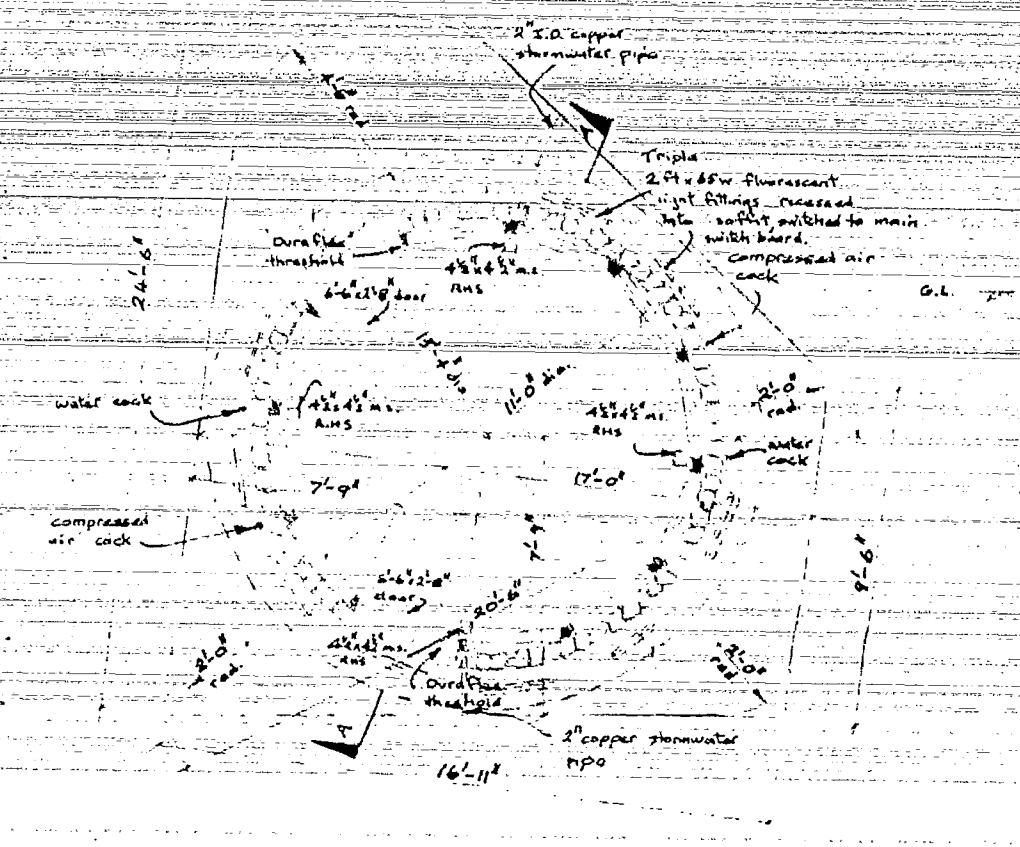 2" I.D. copper
stormwater pipe
rad
A
Triple
2 ft x 65w. fluorescent
light fittings recessed
into soffit switched to main
switch board.
compressed air
cock
G.L.
24'-6"
threshold
4½" x 4½" m.s.
RHS
door
dia
11'-0" dia.
2'-0"
rad.
water cock
4½" x 4½" m.s.
R.H.S
4½" x 4½" m.s.
RHS
water
cock
7'-9"
17'-0"
compressed
air cock
7'-9"
9'-6"
door
20'-6"
4½" x 4½" m.s.
RHS
2'-0"
rad.
2'-0"
rad.
threshold
A
2" copper stormwater
16'-11"